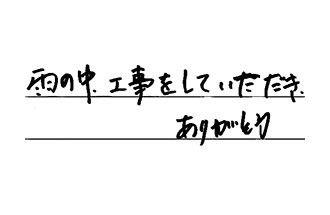 雨の中、工事をしていただき、
ありがとう